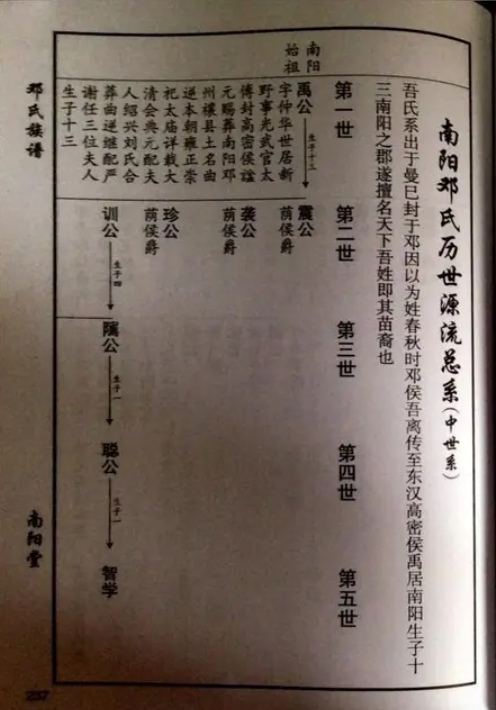 南阳邓氏历世源流总系(中世系)
吾氏系出于曼巳封于邓因以为姓春秋时邓侯吾离传至东汉高密侯禹居南阳生子十
三南阳之郡遂擅名天下吾姓即其苗裔也
第一世
第二世
第三世
第四世
第五世
南阳
始祖
禹公
生子十三
字仲华世居新
野事光武官太
傅封高密侯谥
元赐葬南阳邓
州穰县土名曲
逆本朝雍正崇
祀太庙详载大
清会典元配夫
人绍兴刘氏合
葬曲逆继配严
谢任三位夫人
生子十三
震公
荫侯爵
袭公
荫侯爵
珍公
荫侯爵
训公
生子四
骘公
生子一
聪公
生子一
智学
邓氏族谱
南阳堂
237